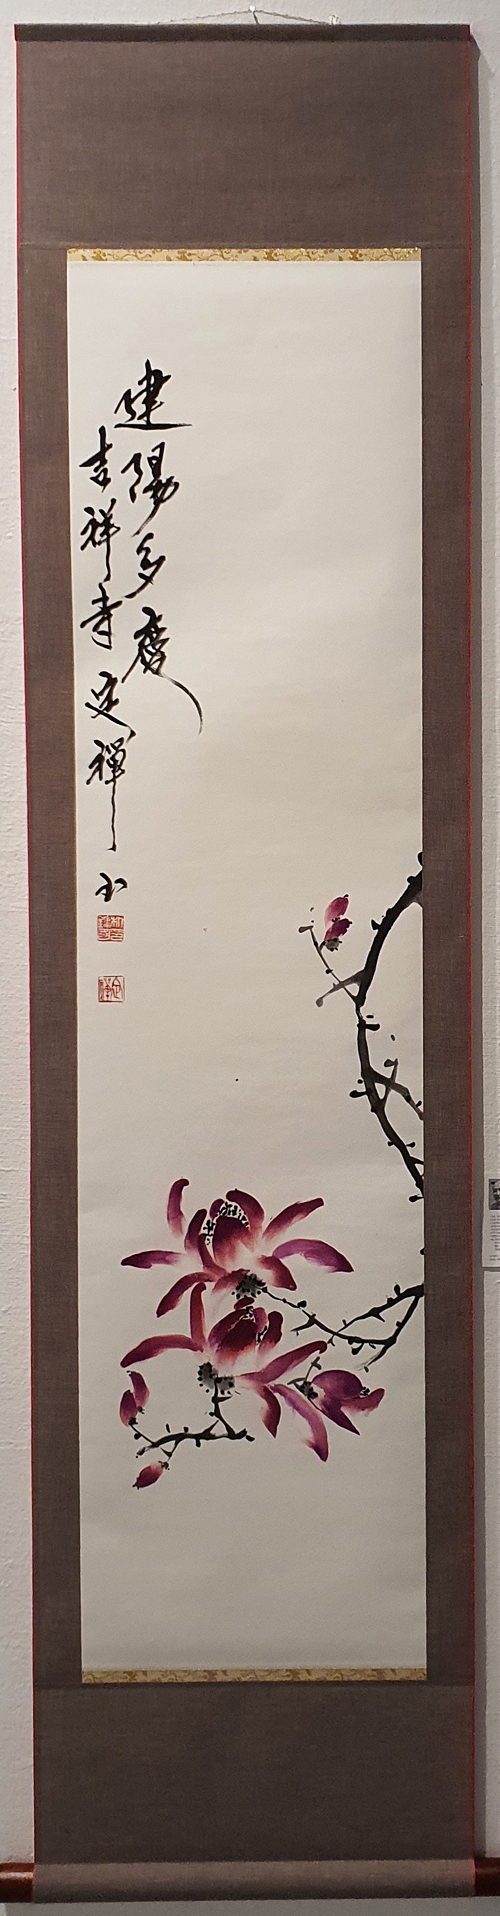 建陽多慶
吉祥寺定禪